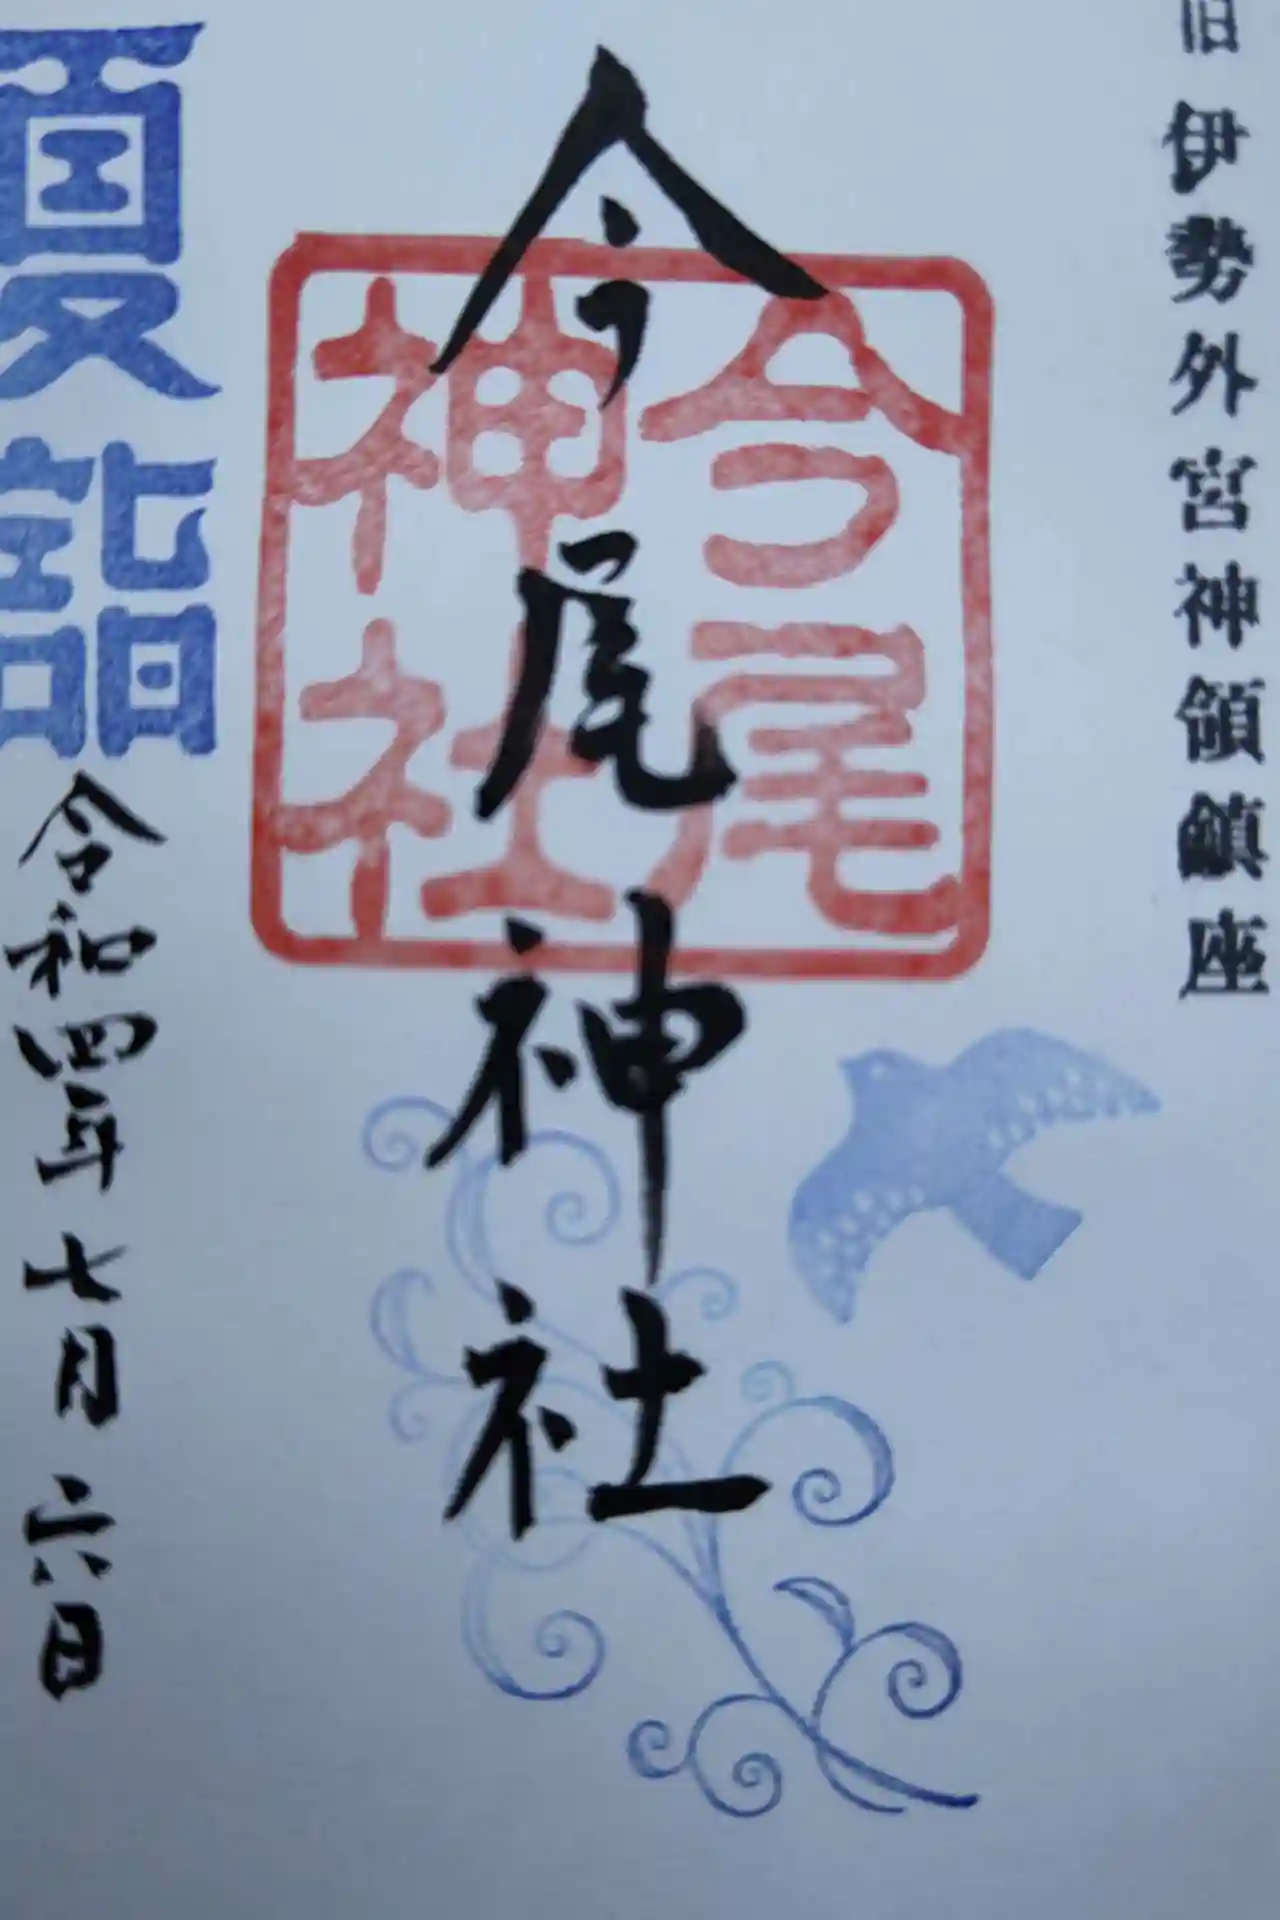 旧伊勢外宮神領鎮座
今尾神社
今尾
神社
夏詣
令和四年七月六日